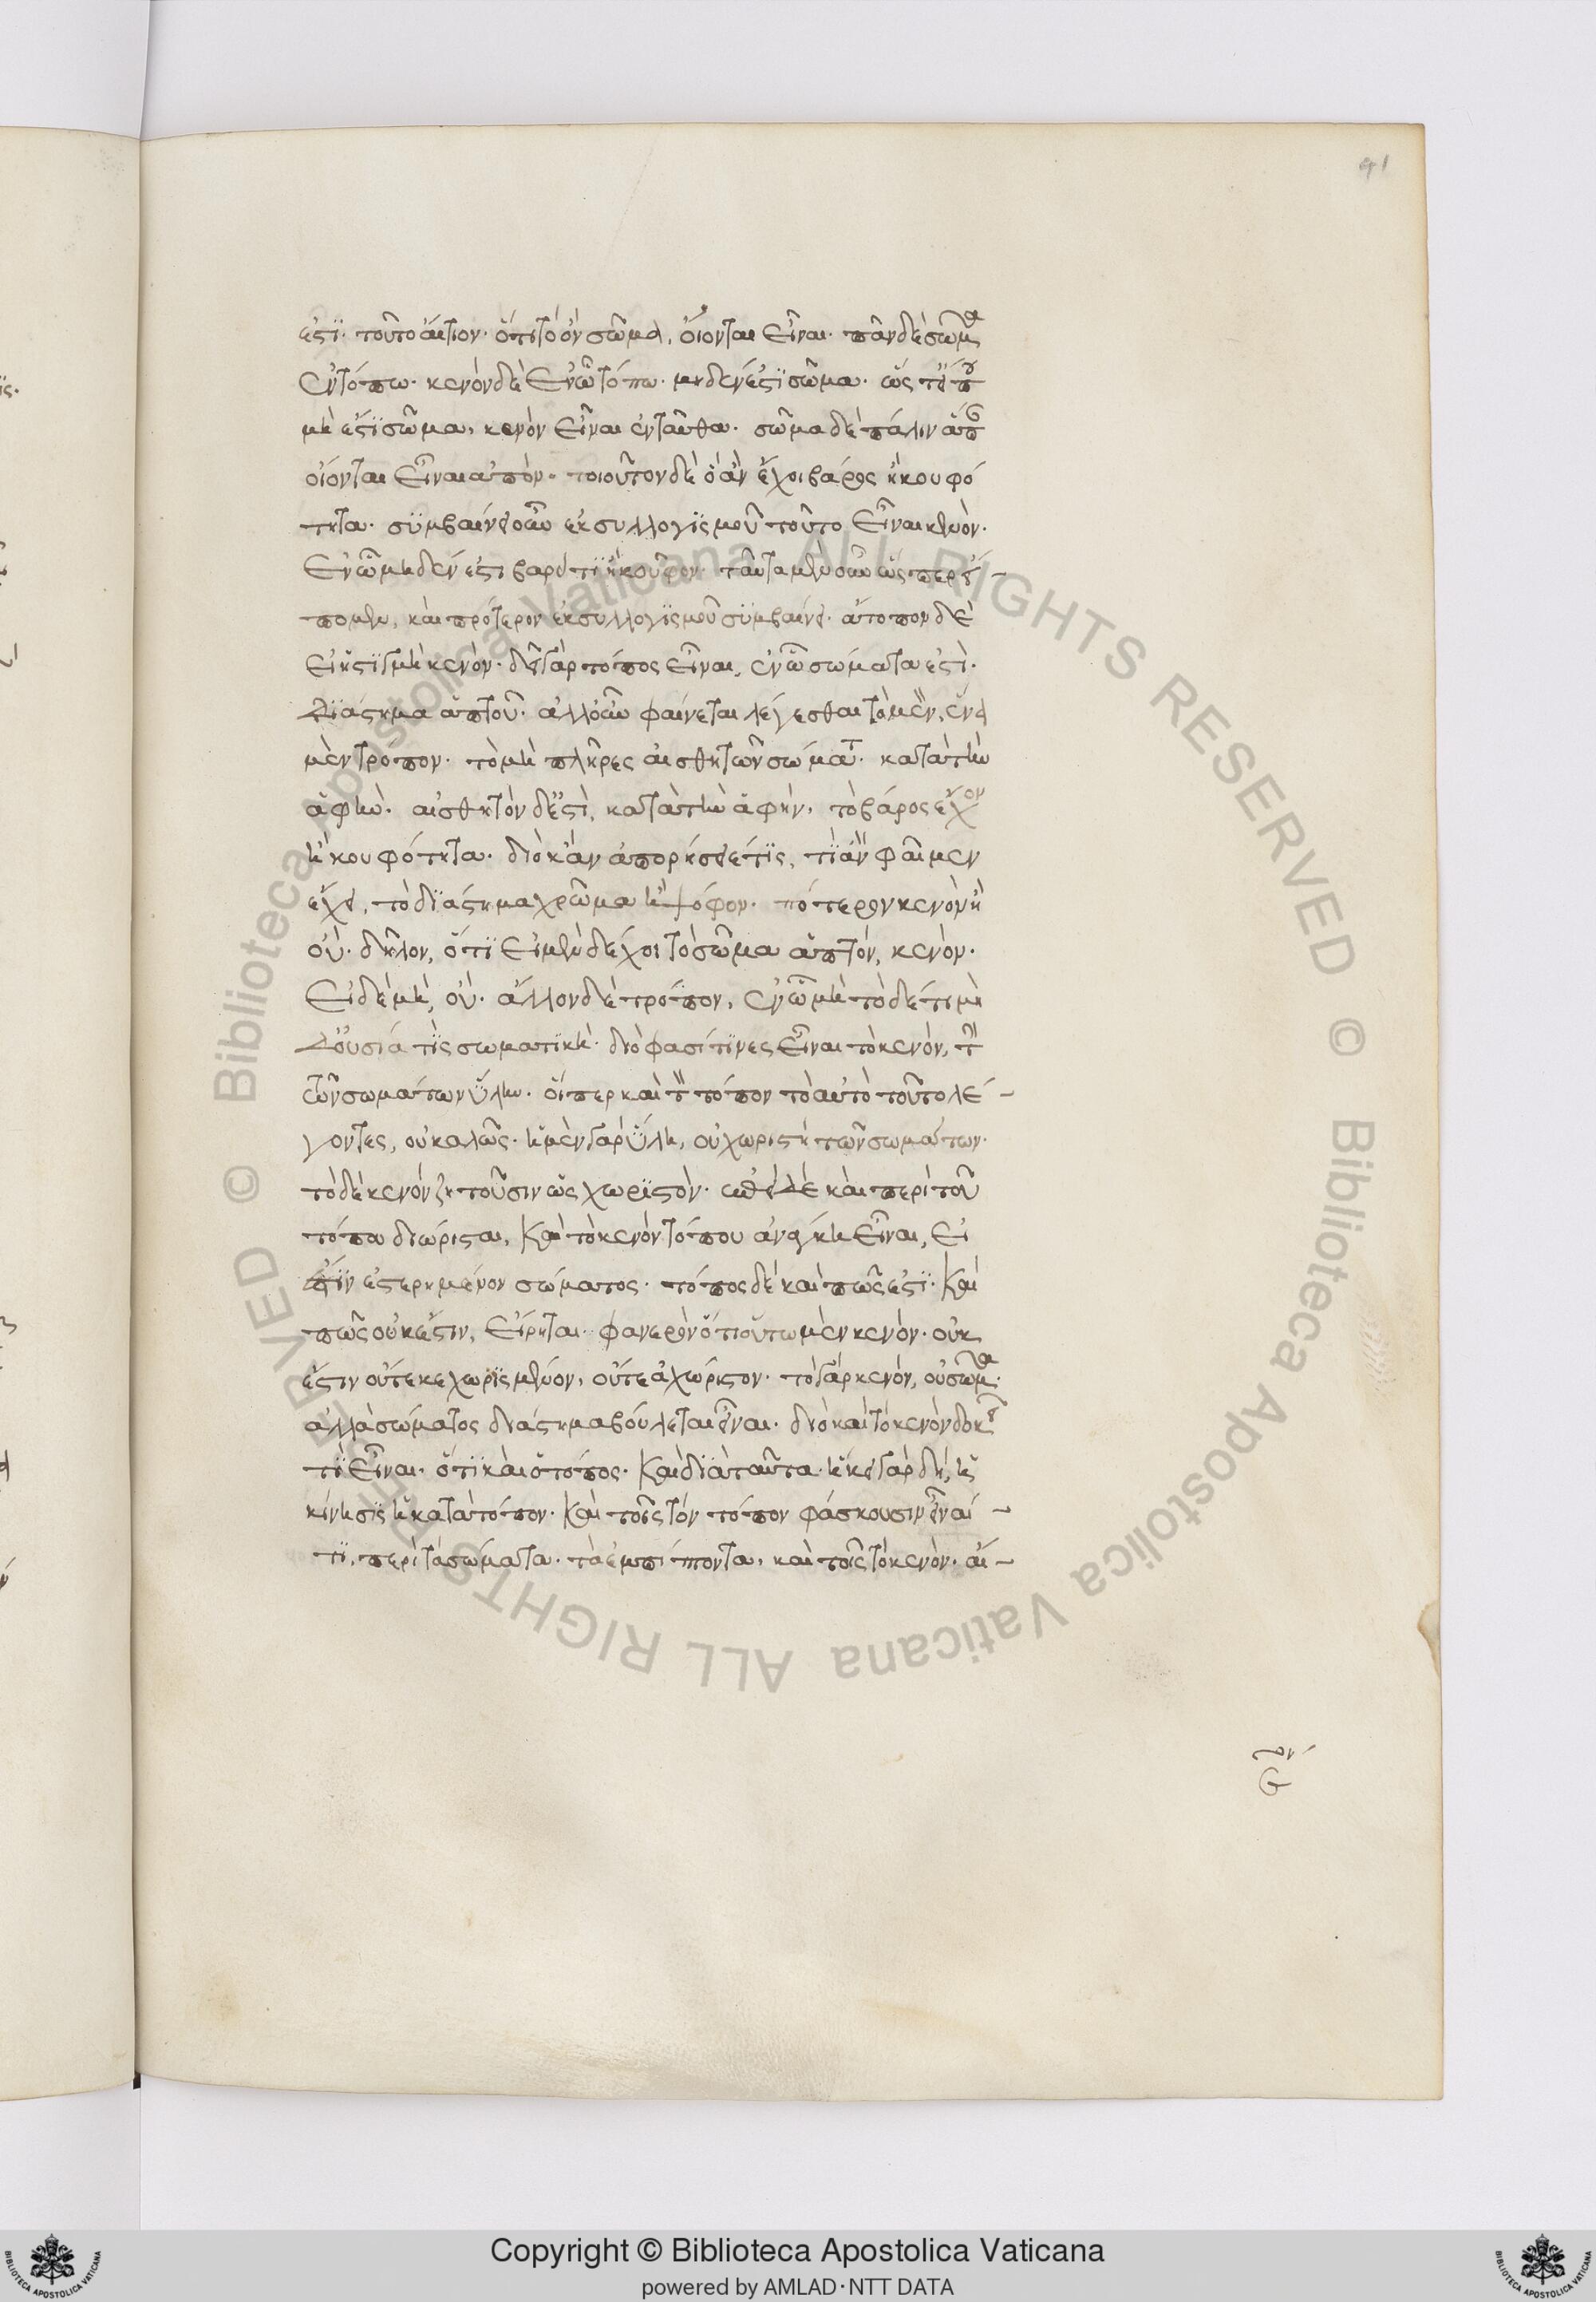 41
ἐστί. τοῦτο αἴτιον. ὅτι τὸ ὂν σῶμα, οἴονται εἶναι. πᾶν δὲ σῶμα
ἐν τόπω. κενὸν δὲ ἐν ὧ τόπω. μηδέν ἐστι σῶμα. ὥστ' εἴ που
μή ἐστι σῶμα, κενὸν εἶναι ἐνταῦθα. σῶμα δὲ πάλιν ἅπαν
οἴονται εἶναι ἁπτόν. τοιοῦτον δὲ ὃ ἂν ἔχοι βάρος ἢ κουφό
τητα. συμβαίνει οὖν ἐκ συλλογισμοῦ τοῦτο εἶναι κενόν.
ἐν ὧ μηδέν ἐστι βαρύ τι ἢ κοῦφον. ταῦτα μὲν οὖν ὥσπερ εἴ-
πομεν, καὶ πρότερον ἐκ συλλογισμοῦ συμβαίνει. ἄτοπον δὲ
εἰ ἡ στιγμὴ κενόν. δεῖ γὰρ τόπος εἶναι, ἐν ὧ σώματα ἐστὶ.
διάστημα ἁπτοῦ. ἀλλ' οὖν φαίνεται λέγεσθαι τὸ μὲν, ἕνα
μὲν τρόπον. τὸ μὴ πλῆρες αἰσθητῶν σωμάτ. κατὰ τὴν
ἁφήν. αἰσθητὸν δ' ἐστὶ, κατὰ τὴν ἁφήν, τὸ βάρος ἔχον
ἢ κουφότητα. διὸ κἂν ἀπορήσειέ τις, τί ἂν φαῖμεν
ἔχει, τὸ διάστημα χρῶμα ἢ ψόφον. πότερον κενὸν ἢ
οὐ. δῆλον, ὅτι εἰ μὲν δέχοι τὸ σῶμα ἁπτόν, κενόν.
εἰ δὲ μή, οὐ. ἄλλον δὲ τρόπον, ἐν ὧ μὴ τὸ δέ τι μὴ
δ' οὐσία τὶς σωματική. διὸ φασί τινες εἶναι τὸ κενόν, τὴν
τῶν σωμάτων ὕλην. οἵπερ καὶ τὸν τόπον τὸ αὐτὸ τοῦτο λέ-
γοντες, οὐ καλῶς. ἡ μὲν γὰρ ὕλη, οὐ χωριστὴ τῶν σωμάτων.
τὸ δὲ κενόν ζητοῦσιν ὡς χωριστόν. ἐπεὶ δὲ καὶ περὶ τοῦ
τόπου διώρισται, καὶ τὸ κενόν τόπου ἀνάγκη εἶναι, εἰ
ἐστὶν ἐστερημένον σώματος. τόπος δὲ καὶ πῶς ἐστί. καὶ
πῶς οὐκ ἔστιν, εἴρηται. φανερὸν ὅτι οὕτω μὲν κενόν. οὐκ
ἔστιν οὔτε κεχωρισμένον, οὔτε ἀχώριστον. τὸ γὰρ κενόν, οὐ σῶμα.
ἀλλὰ σώματος διάστημα βούλεται εἶναι. διὸ καὶ τὸ κενὸν δοκεῖ
τὶ εἶναι. ὅτι καὶ ὁ τόπος. καὶ διὰ ταῦτα. ἥκει γὰρ δὴ, ἡ
κίνησις ἡ κατὰ τόπον. καὶ τοῖς τὸν τόπον φάσκουσιν εἶναί -
τι, περὶ τὰ σώματα. τὰ ἐμπίπτοντα, καὶ τοῖς τὸ κενόν. αἴ-
Copyright © Biblioteca Apostolica Vaticana
powered by AMLAD·NTT DATA